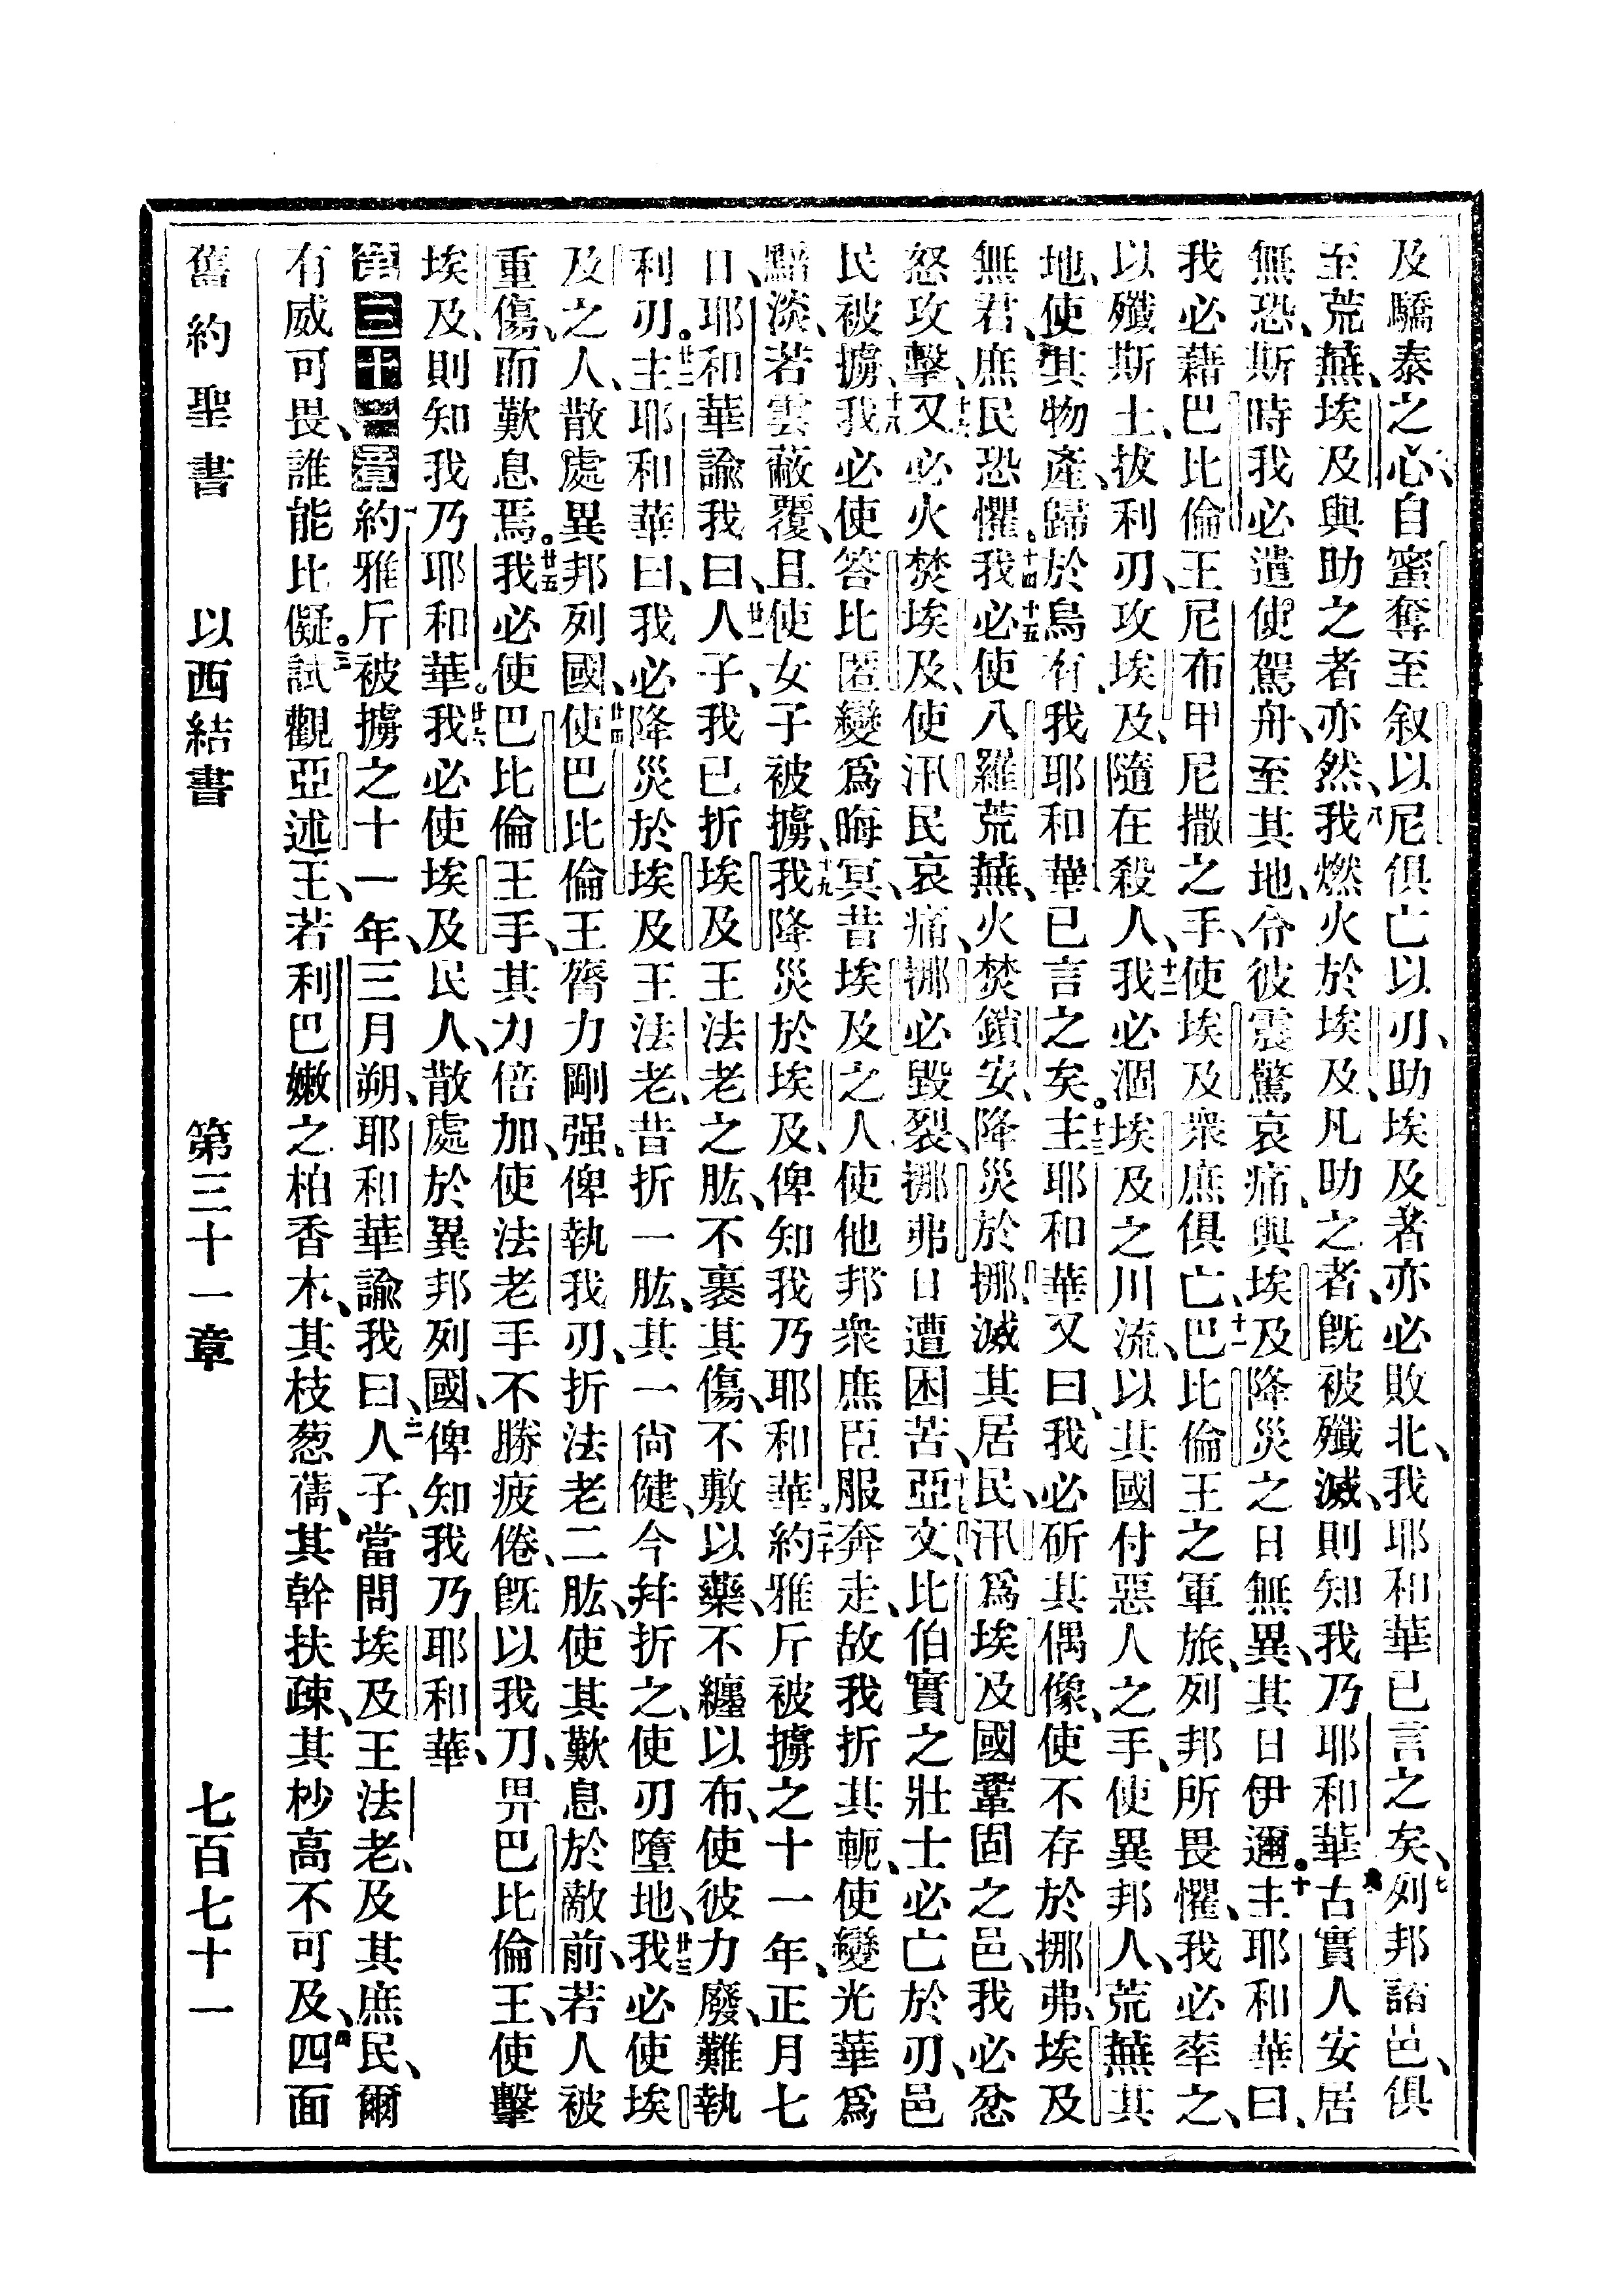 及驕泰之心、自蜜奪至叙以尼俱亡以刃、助埃及者亦必敗北、我耶和華已言之矣、七列邦諸邑、俱
至荒蕪、埃及與助之者亦然、八我燃火於埃及、凡助之者、旣被殲滅、則知我乃耶和華九古實人安居
無恐、斯時我必遣使駕舟、至其地、令彼震驚哀痛、與埃及降災之日無異、其日伊邇。十主耶和華曰、
我必藉巴比倫王尼布甲尼撒之手、使埃及衆庶俱亡、十一巴比倫王之軍旅、列邦所畏懼、我必率之、
以殲斯土、拔利刃、攻埃及、隨在殺人、十二我必涸埃及之川流、以其國付惡人之手、使異邦人、荒蕪其
地、使其物產、歸於烏有、我耶和華已言之矣。十三主耶和華又曰、我必斫其偶像、使不存於挪弗、埃及
無君、庶民恐懼。十四我必使八羅荒蕪、火焚鎖安、降災於挪、滅其居民、十五汛爲埃及國鞏固之邑、我必忿
怒攻擊、十六又必火焚埃及、使汛民哀痛、挪必毀裂、挪弗日遭困苦、十七亞文、比伯實之壯士必亡於刃、邑
民被擄、十八我必使答比匿變爲晦冥、昔埃及之人使他邦衆庶臣服奔走、故我折其軛、使變光華爲
黯淡、若雲蔽覆、且使女子被擄、十九我降災於埃及、俾知我乃耶和華。二十約雅斤被擄之十一年、正月七
日、耶和華諭我曰、廿一人子、我已折埃及王法老之肱、不裹其傷、不敷以藥、不纏以布、使彼力廢、難執
利刃。廿二主耶和華曰、我必降災於埃及王法老、昔折一肱、其一尚健、今幷折之、使刃墮地、廿三我必使埃
及之人、散處異邦列國、廿四使巴比倫王膂力剛强、俾執我刃、折法老二肱、使其歎息於敵前、若人被
重傷、而歎息焉。廿五我必使巴比倫王手、其力倍加、使法老手不勝疲倦、旣以我刀、畀巴比倫王、使擊
埃及、則知我乃耶和華。廿六我必使埃及民人、散處於異邦列國、俾知我乃耶和華、
第三十一章一約雅斤被擄之十一年、三月朔、耶和華諭我曰、二人子、當問埃及王法老、及其庶民、爾
有威可畏、誰能比儗。三試觀亞述王、若利巴嫩之柏香木、其枝葱蒨、其幹扶疎、其杪高不可及、四四面
舊約聖書 以西結書 第三十一章 七百七十一